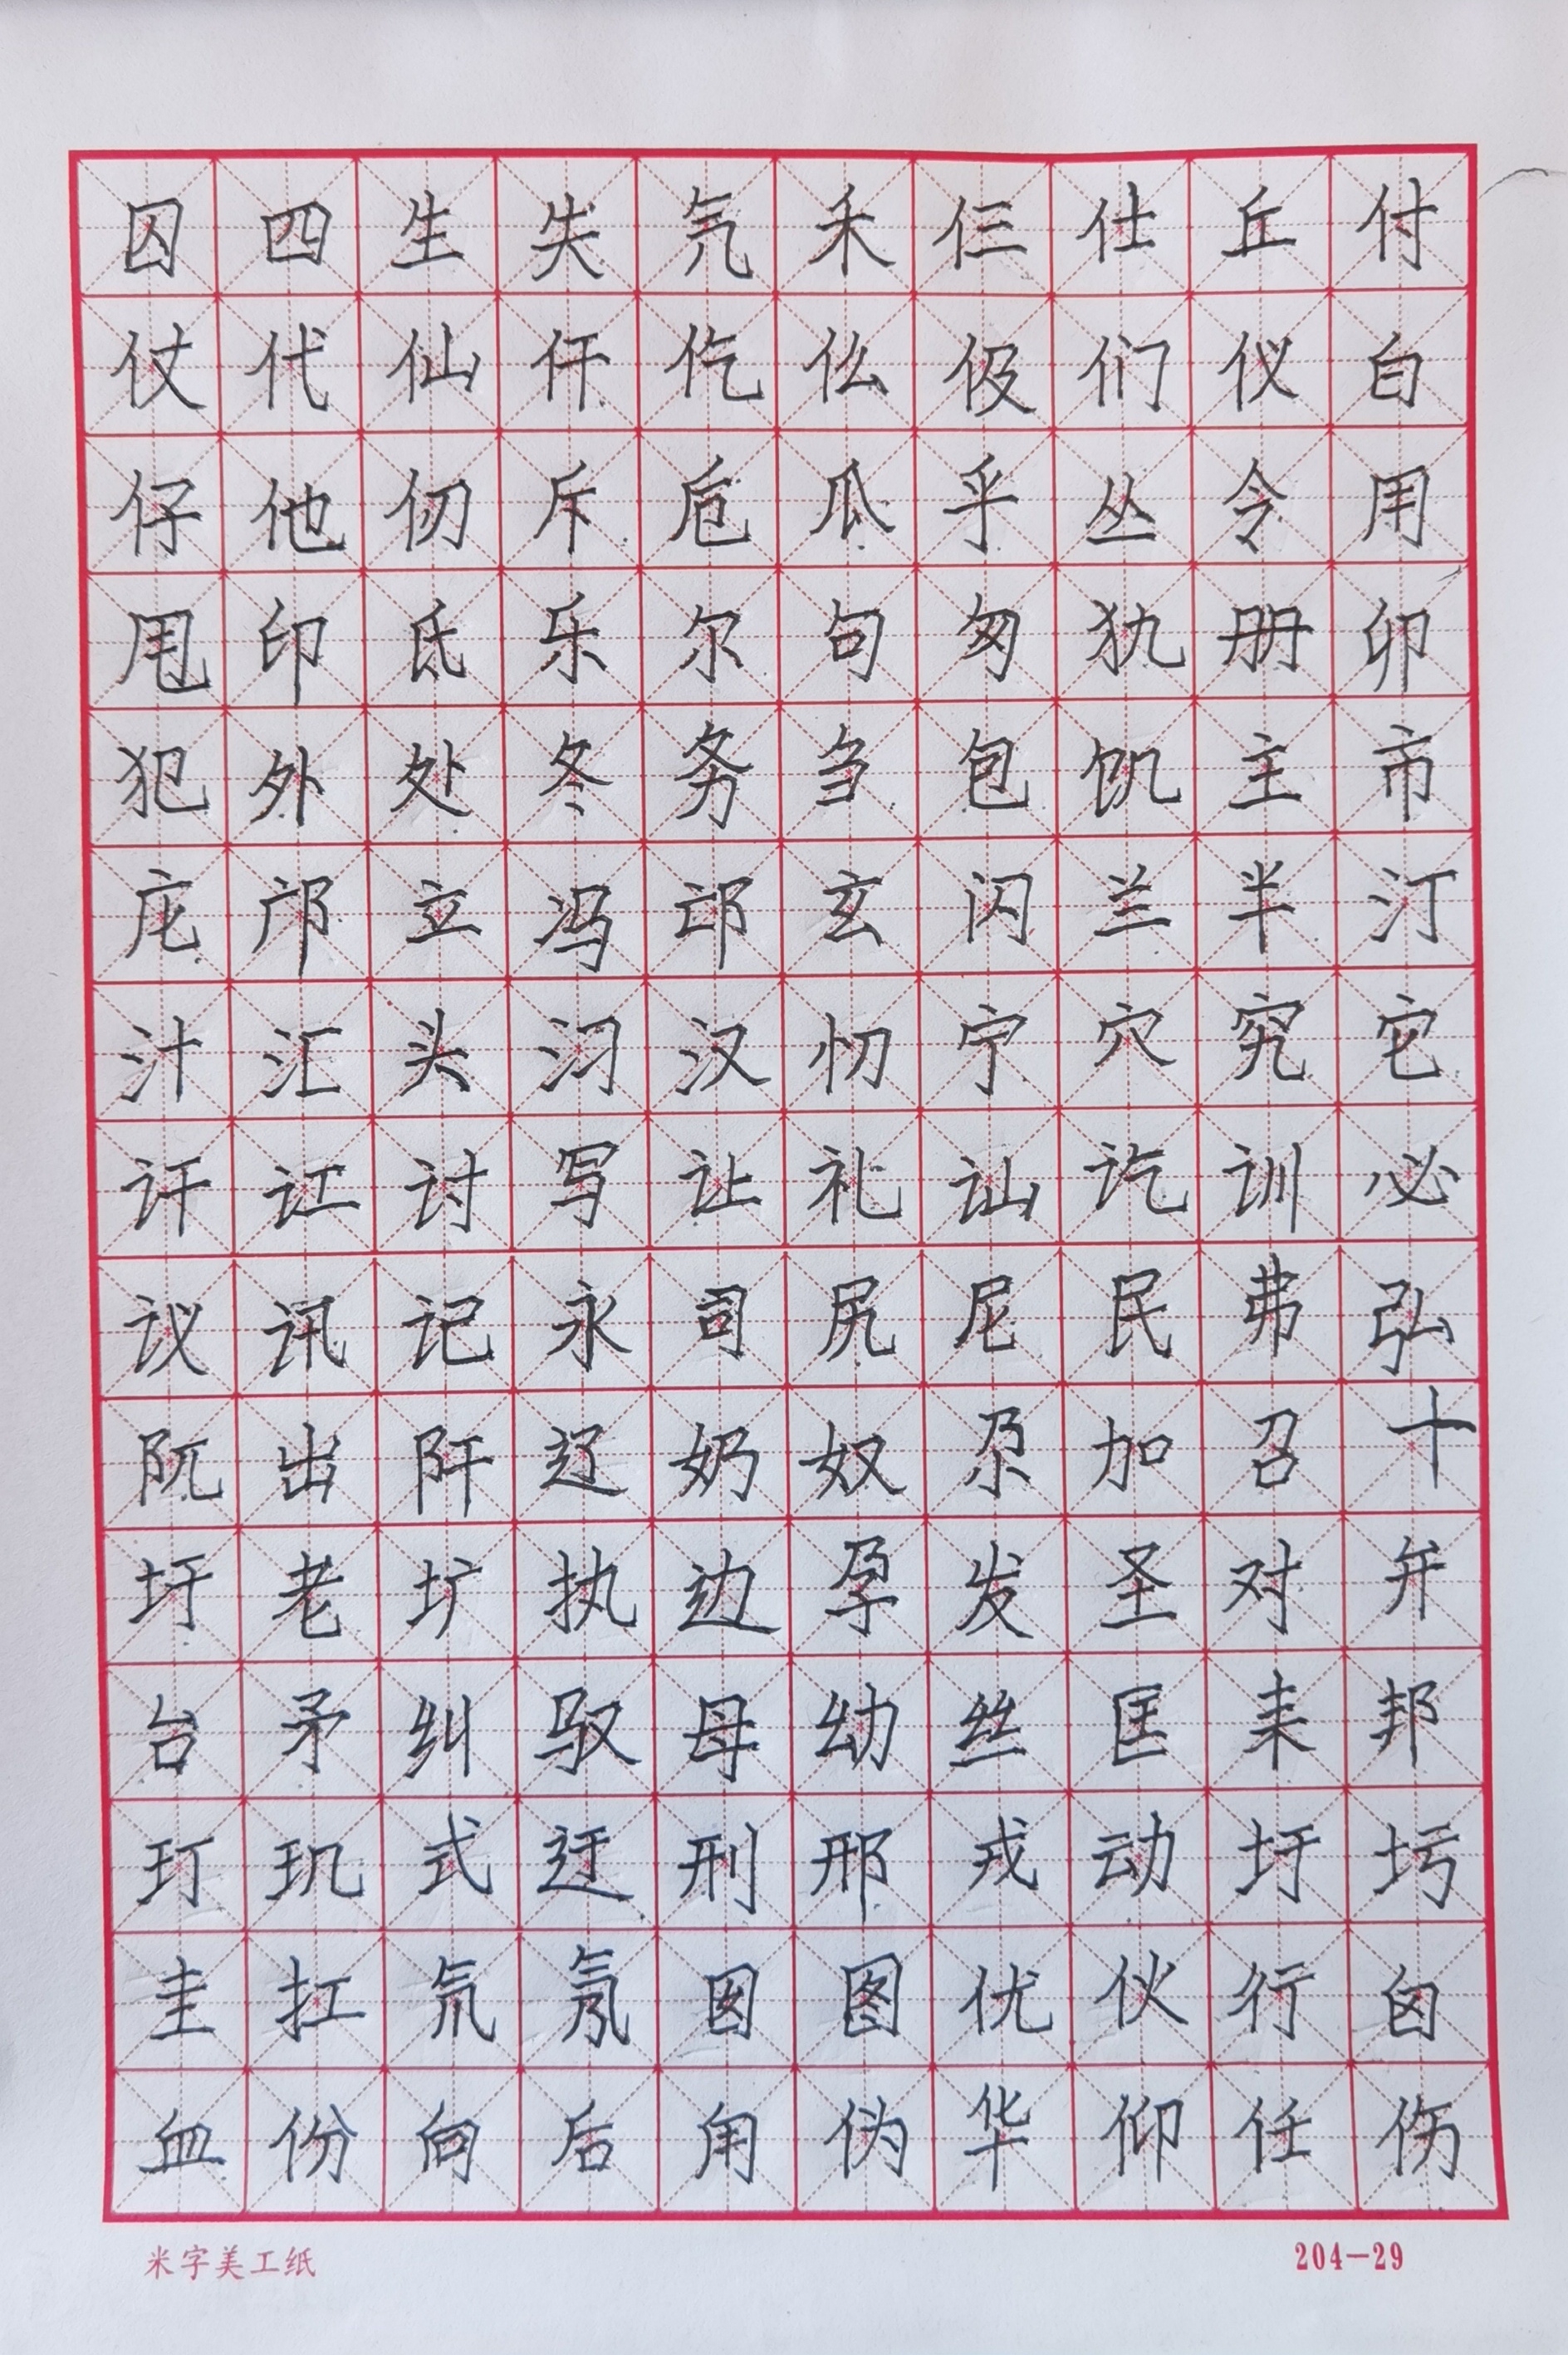 囚四生失氕禾仨仕丘付
仗代仙仟仡仫伋们仪白
仔他仞斥卮瓜乎丛令用
甩印氐乐尔句匆犰册卯
犯外处冬务刍包饥主市
庀邝立冯邙玄闪兰半汀
汁汇头汈汉忉宁穴究它
讦讧讨写让礼讪讫训必
议讯记永司尻尼民弗弘
阢出阡辽奶奴尕加召十
圩老圹执边孕发圣对弁
台矛纠驭母幼丝匡耒邦
玎玑式迂刑邢戎动圩圬
圭扛氘氖囡图优伙行囟
血份向后甪伪华仰任伤
米字美工纸 204-29